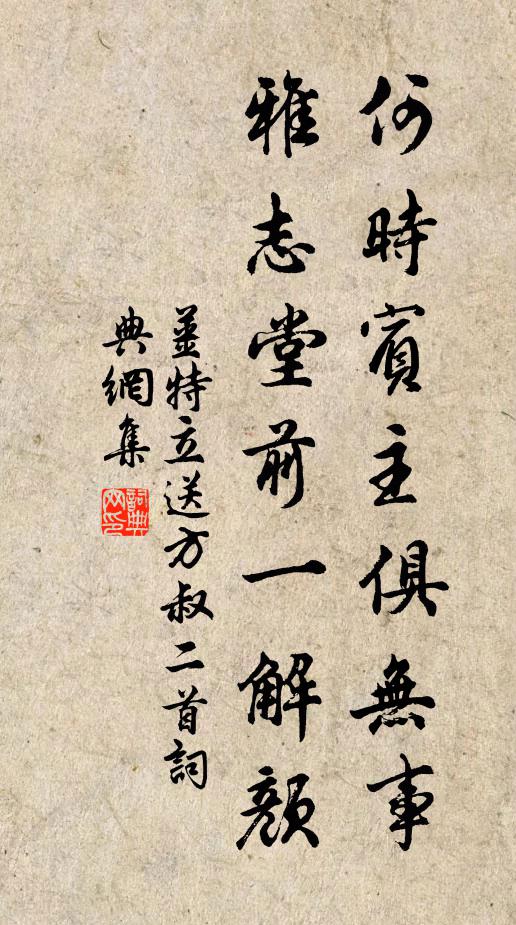 何時賓主俱無事
雅志堂前一解顏
薑特立送方叔二首詞
典網集
詞典網印